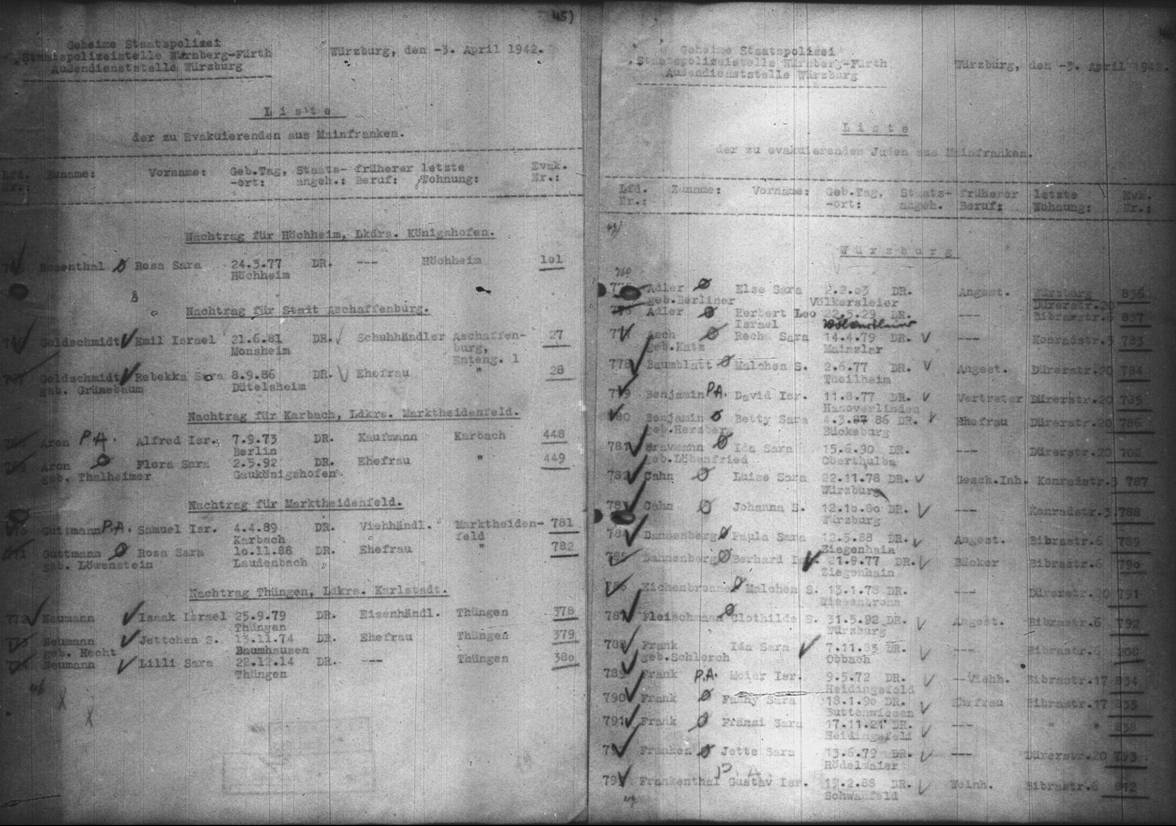 45)
Geheime Staatspolizei
Staatspolizeistelle Nürnberg-Fürth
Außendienststelle Würzburg
Würzburg, den -3. April 1942.
Liste
der zu Evakuierenden aus Mainfranken.
Lfd. Zuname: Vorname: Geb.Tag, Staats- früherer letzte Evak.
Nr.: -ort: angeh.: Beruf: Wohnung: Nr.:
Nachtrag für Höchheim, Lkdrs. Königshofen.
Rosenthal Rosa Sara 24.3.77 DR. --- Höchheim 101
Höchheim
Nachtrag für Stadt Aschaffenburg.
Goldschmidt Emil Israel 21.6.81 DR. Schuhhändler Aschaffen- 27
Monsheim burg,
Enteng. 1
Goldschmidt Rebekka Sara 8.9.86 DR. Ehefrau " 28
geb. Grünebaum Dütelsheim
Nachtrag für Karbach, Ldkrs. Marktheidenfeld.
Aron P.A. Alfred Isr. 7.9.73 DR. Kaufmann Karbach 448
Berlin
Aron Flora Sara 2.5.92 DR. Ehefrau " 449
geb. Thalheimer Gaukönigshofen
Nachtrag für Marktheidenfeld.
Guttmann P.A. Samuel Isr. 4.4.89 DR. Viehhändl. Marktheiden- 781
Karbach feld
Guttmann Rosa Sara 10.11.88 DR. Ehefrau " 782
geb. Löwenstein Laudenbach
Nachtrag Thüngen, Ldkrs. Karlstadt.
772 Neumann Isaak Israel 25.9.79 DR. Eisenhändl. Thüngen 378
Thüngen
773 Neumann Jettchen S. 13.11.74 DR. Ehefrau Thüngen 379
geb. Hecht Baumhausen
Neumann Lilli Sara 22.12.14 DR. --- Thüngen 380
Thüngen
Geheime Staatspolizei
Staatspolizeistelle Nürnberg-Fürth
Außendienststelle Würzburg
Würzburg, den -3. April 1942.
Liste
der zu evakuierenden Juden aus Mainfranken.
Lfd. Zuname: Vorname: Geb.Tag, Staats- früherer letzte Evk.
Nr.: -ort: angeh. Beruf: Wohnung: Nr.:
Würzburg
Adler Else Sara 2.2.03 DR. Angest. Würzburg 836
geb. Berliner Völkersleier Dürerstr.20
Adler Herbert Leo 22.5.29 DR. --- Bibrastr.6 837
Israel
777 Asch Recha Sara 14.4.79 DR. --- Konradstr.3 783
geb. Katz Mainzlar
778 Baumblatt Malchen S. 2.6.77 DR. Angest. Dürerstr.20 784
Theilheim
779 Benjamin P.A. David Isr. 11.8.77 DR. Vertreter Dürerstr.20 785
780 Benjamin Betty Sara 4.3.86 DR. Ehefrau Dürerstr.20 786
geb. Herzberg Bückeburg
781 Ida Sara 15.6.90 DR. --- Dürerstr.20
geb. Löbenfried Oberthulba
782 Cahn Luise Sara 22.11.78 DR. Gesch.Inh. Konradstr.3 787
Würzburg
783 Cahn Johanna S. 12.10.80 DR. --- Konradstr.3 788
Würzburg
784 Dannenberg Paula Sara 12.5.88 DR. Angest. Bibrastr.6 789
Ziegenhain
785 Dannenberg Berhard 21.9.77 DR. Bäcker Bibrastr.6 790
Ziegenhain
Eichenbronner Malchen S. 13.1.78 DR. --- Dürerstr.20 791
787 Fleischmann Clothilde S. 31.5.92 DR. Angest. Bibrastr.6 792
Würzburg
788 Frank Ida Sara 7.11.83 DR. --- Bibrastr.6
geb. Schlorch Obbach
789 Frank P.A. Meier Isr. 9.5.72 DR. --Viehh. Bibrastr.17 834
Heidingsfeld
790 Frank Fanny Sara 18.1.90 DR. Ehefrau Bibrastr.17 835
Buttenwiesen
791 Frank Fränzi Sara 17.11.21 DR. --- " "
Heidingsfeld
Franken Jette Sara 13.6.79 DR. --- Dürerstr.20 793
Rödelmaier
P.A.
793 Frankenthal Gustav Isr. 19.2.88 DR. Weinh. Bibrastr.6 812
Schwanfeld